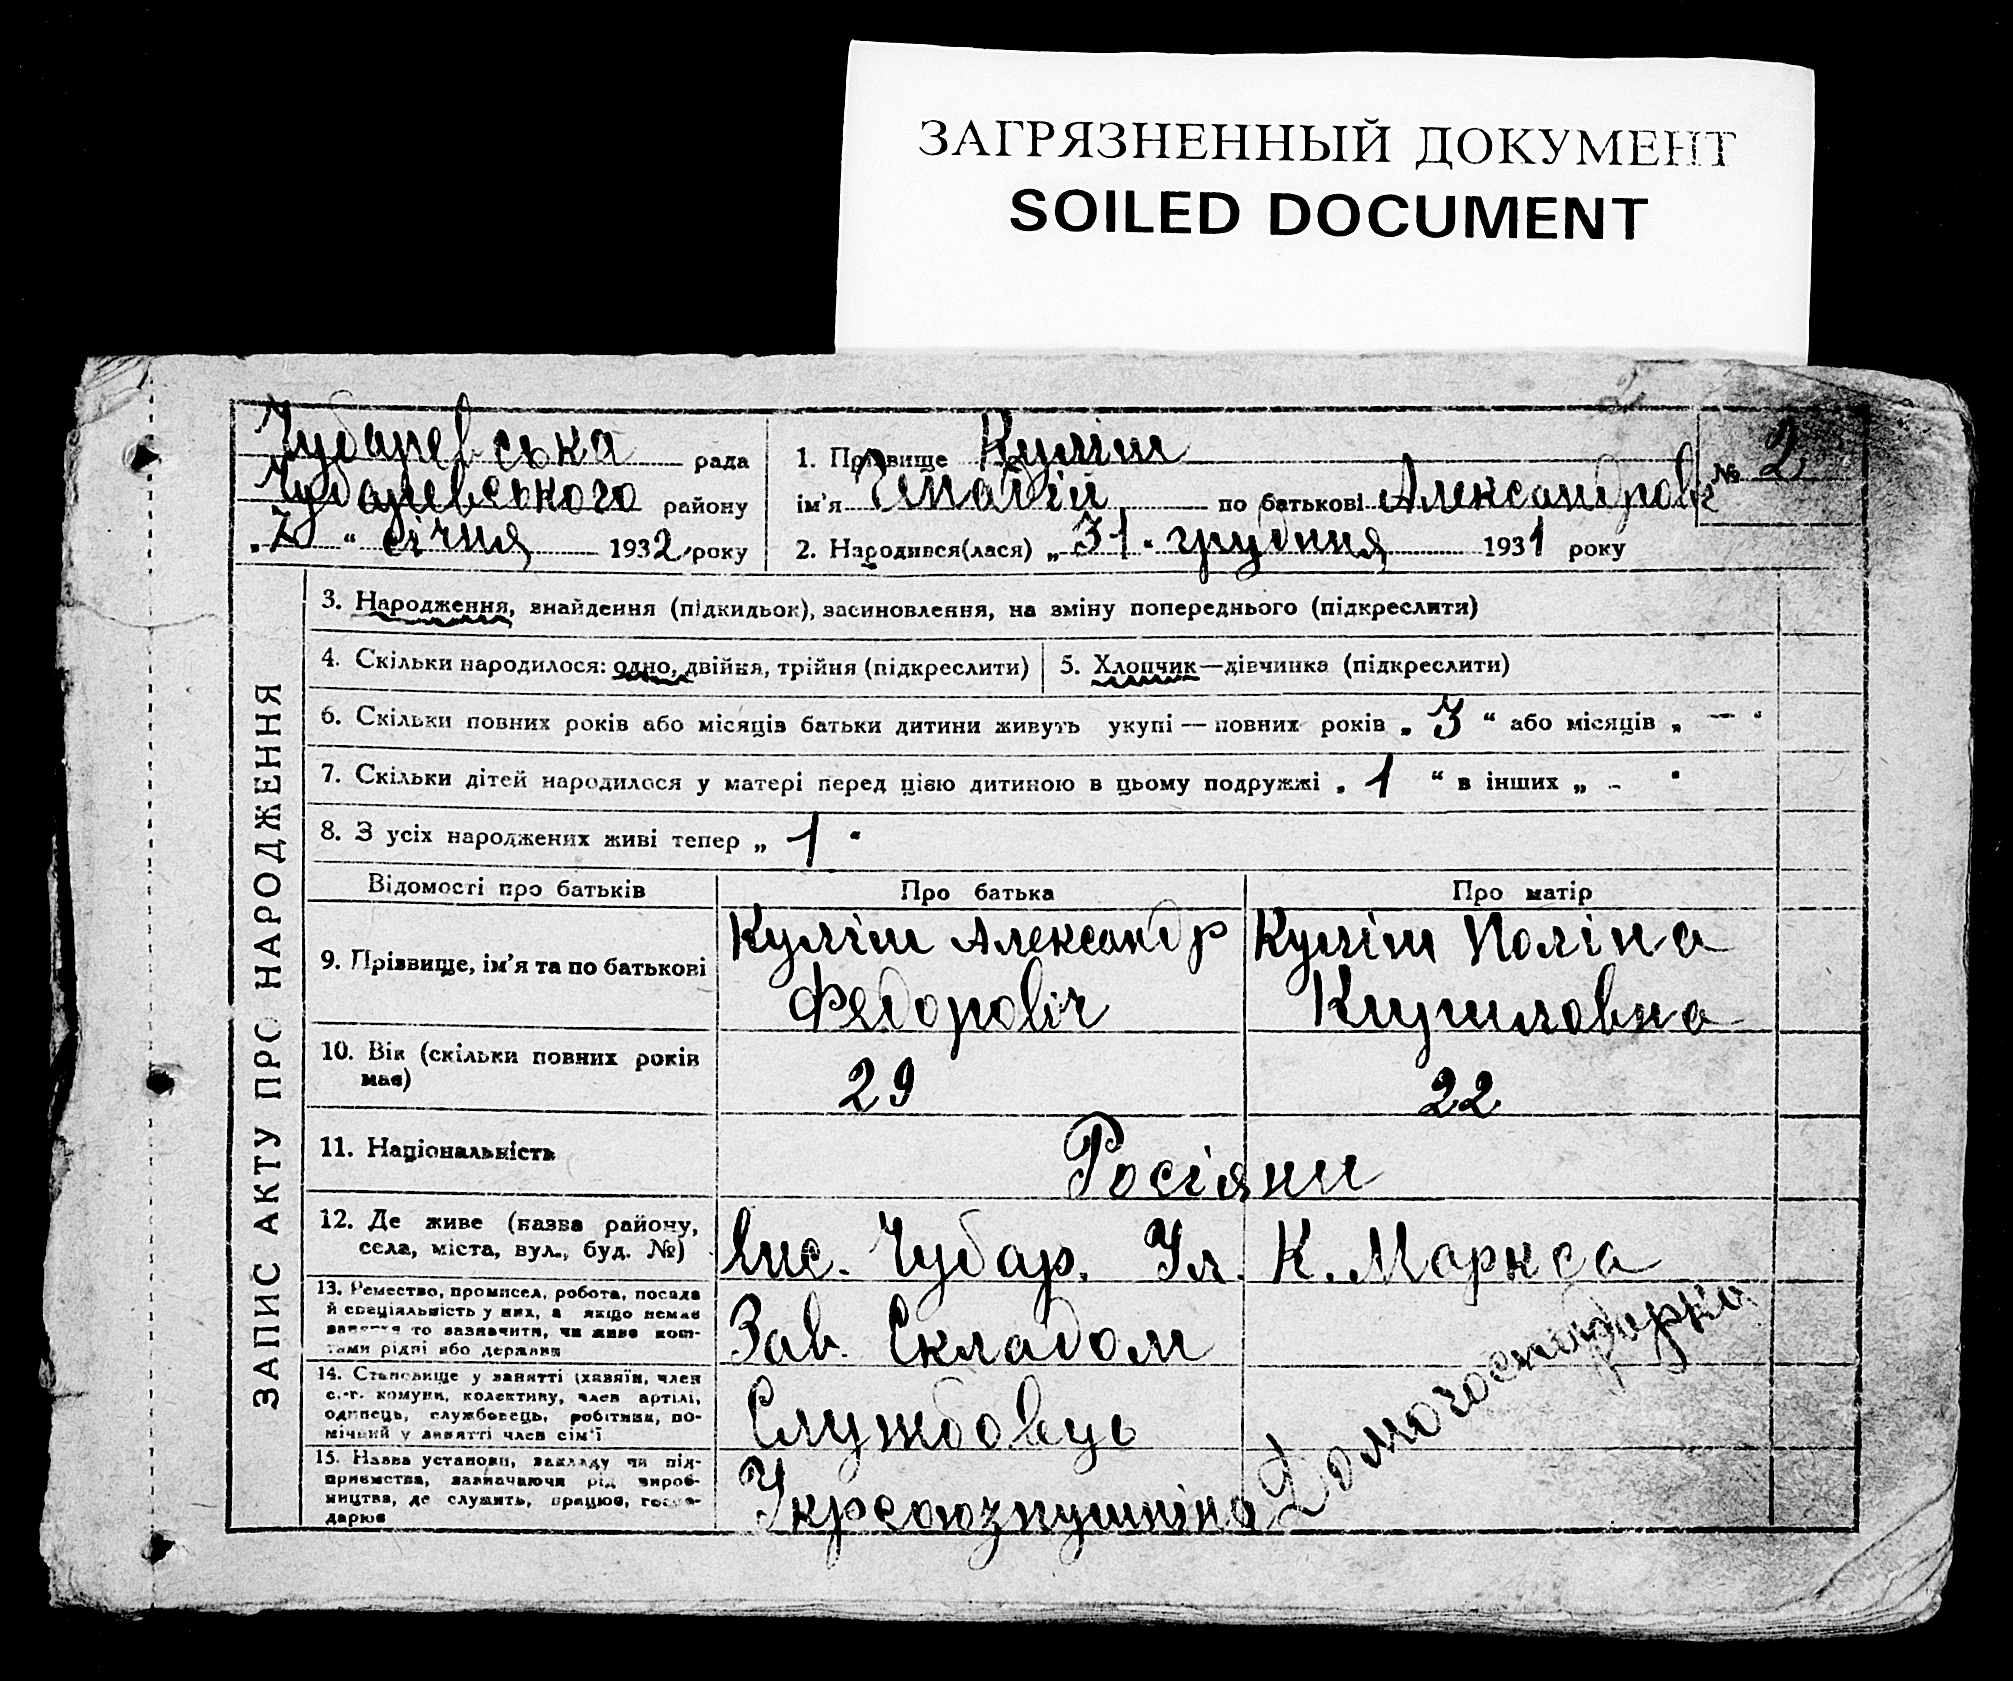 ЗАГРЯЗНЕННЫЙ ДОКУМЕНТ
SOILED DOCUMENT
2
ЗАПИС АКТУ ПРО НАРОДЖЕННЯ
Чубарівська рада
Чубарівського району
"2" січня 1932 року
1. Прізвище Куліш
№ 2
ім'я Генадій по батькові Александров
2. Народився(лася) "31" грудння 1931 року
3. Народження, знайдення (підкидьок), засиновлення, на зміну попереднього (підкреслити)
4. Скільки народилося: одно, двійня, трійня (підкреслити)
5. Хлопчик—дівчинка (підкреслити)
6. Скільки повних років або місяців батьки дитини живуть укупі — повних років „ 3 “ або місяців „ — “
7. Скільки дітей народилося у матері перед цією дитиною в цьому подружжі „ 1 “ в інших „ - “
8. З усіх народжених живі тепер „ 1 “
Відомості про батьків Про батька Про матір
9. Прізвище, ім'я та по батькові
Куліш Александр
Федоровіч
Куліш Поліна
10. Вік (скільки повних років
має)
29
22
11. Національність
Росіяни
12. Де живе (назва району,
села, міста, вул., буд. №)
Чубар. Ул. К. Маркса
13. Ремество, промисел, робота, посада
й спеціальність у них, а якщо немає
заняття то зазначити, чи живе кош-
тами рідні або держави
Зав. Складом
14. Становище у занятті (хазяїн, член
с.-г. комуни, колективу, член артілі,
одинець, службовець, робітник, по-
мічний у занятті член сім'ї
Службовуць
15. Назва установи, закладу чи під-
приємства, зазначаючи рід вироб-
ництва, де служить, працює, госпо-
дарює
Укрсоюзпушніна
Домогосподарка